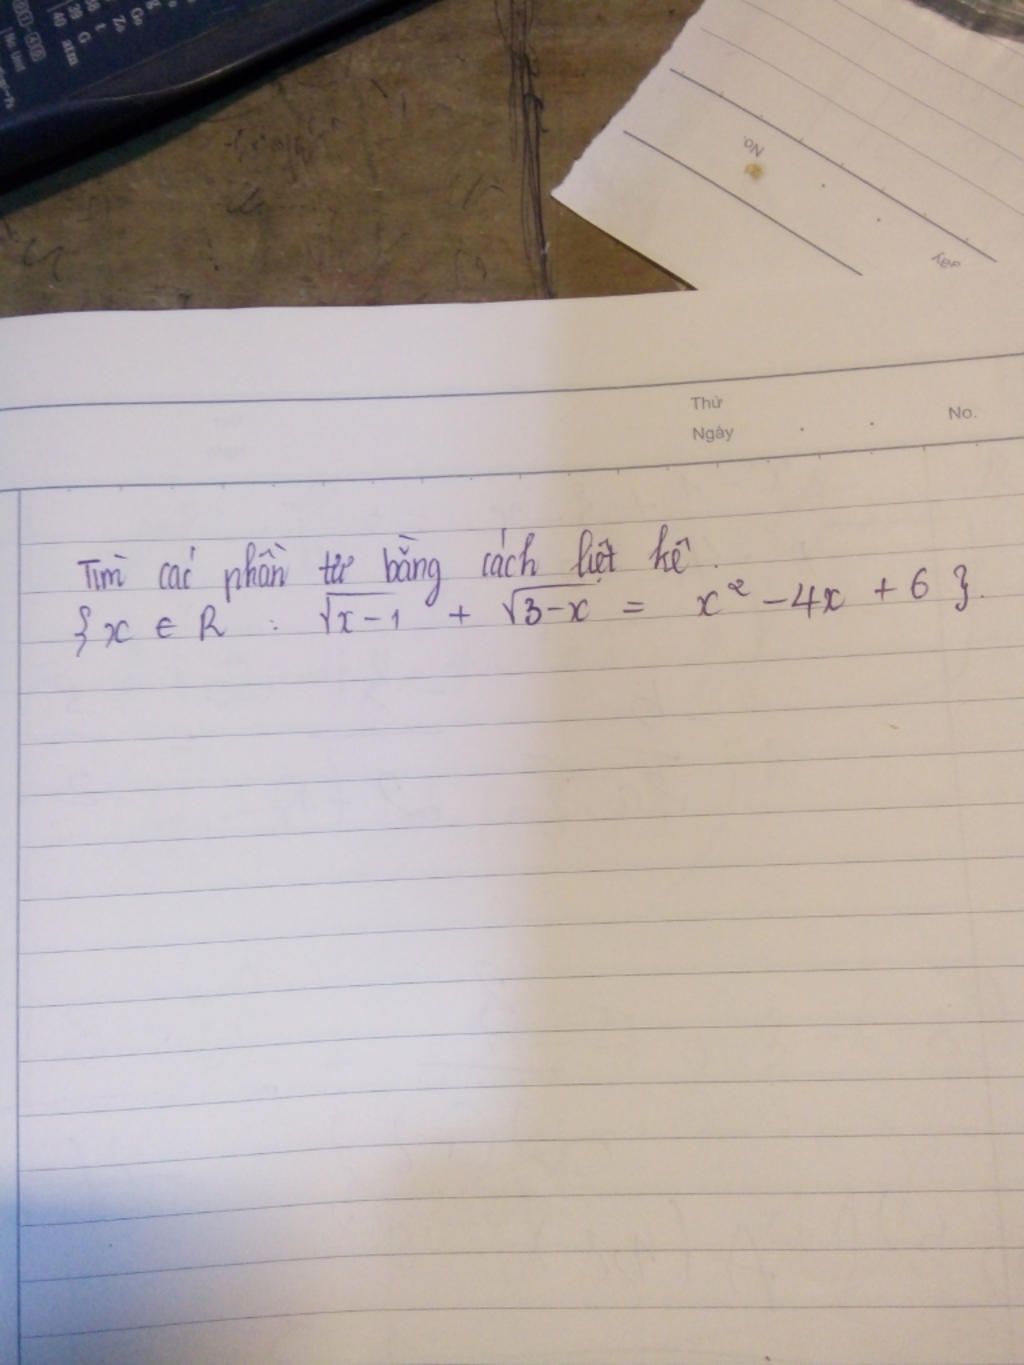 No.
Thứ
Ngày
No.
Tìm các phần tử bằng cách liệt kê.
{x ∈ R : √x-1 + √3-x = x² - 4x + 6}.